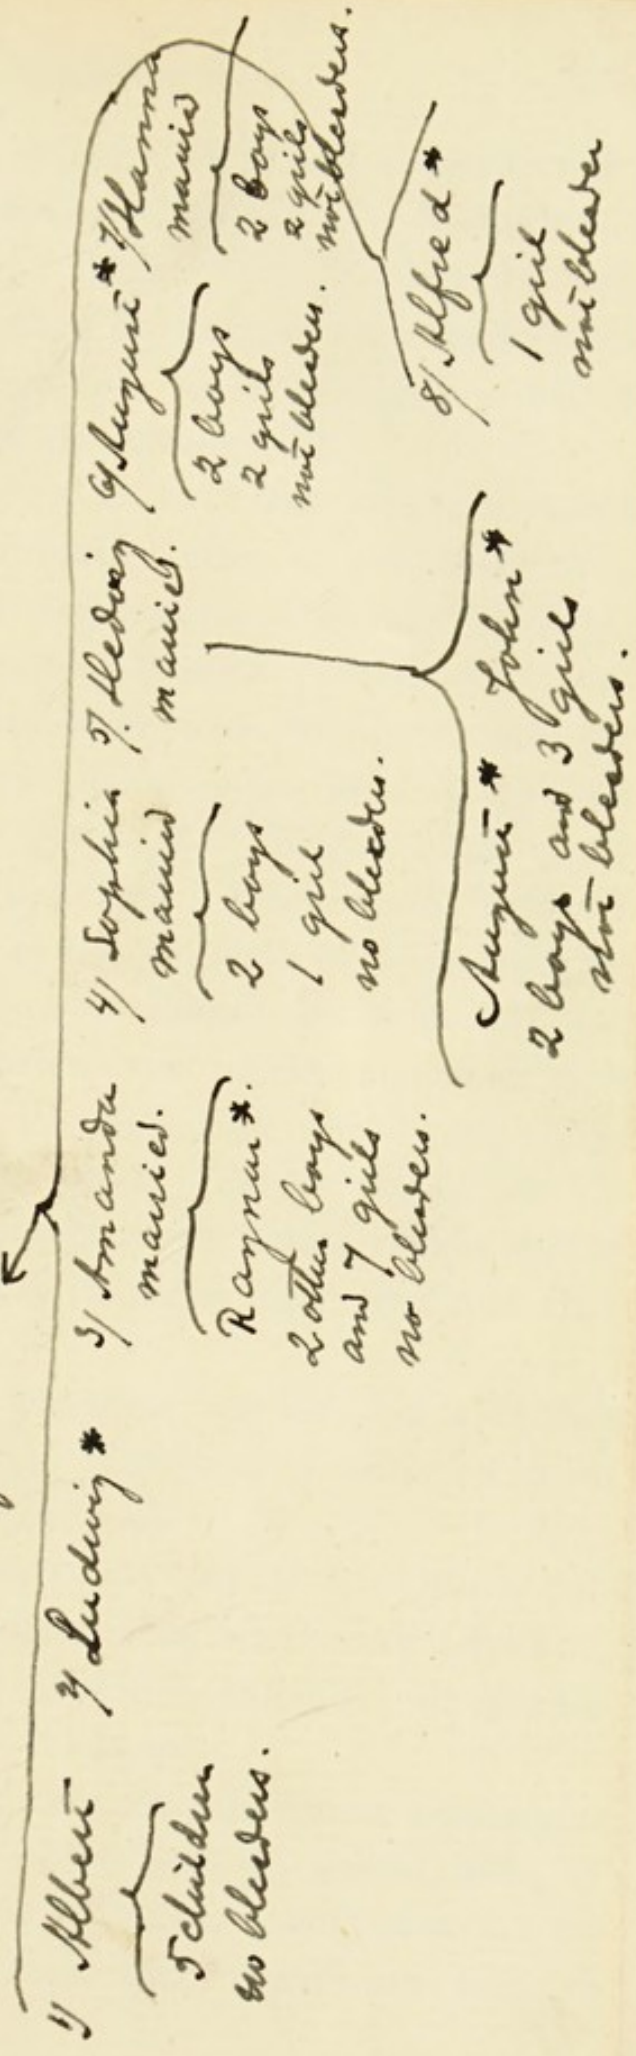 1) Albert
5 children
no bleeders.
2) Ludwig *
3) Amanda
married.
Ragnar *.
2 other boys
and 7 girls
no bleeders.
4) Sophia
married
2 boys
1 girl
no bleeders.
5). Hedwig
married.
August * John *
2 boys and 3 girls
not bleeders.
6) August *
2 boys
2 girls
not bleeders.
7) Hanna
married
2 boys
2 girls
not bleeders.
8) Alfred *
1 girl
not bleeder